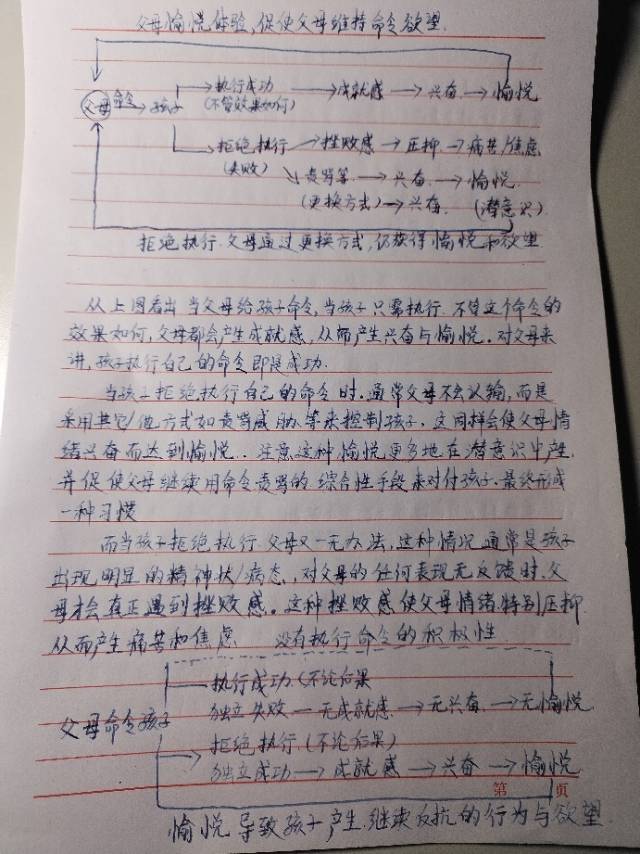 父母愉悦体验,促使父母维持命令欲望.
执行成功 → 成就感 → 兴奋 → 愉悦
父母 命令→ 孩子 (不管效果如何)
拒绝执行 → 挫败感 → 压抑 → 痛苦/焦虑
(失败) ↘ 责骂等 → 兴奋 → 愉悦.
(更换方式) → 兴奋. (潜意识).
拒绝执行.父母通过更换方式,仍获得愉悦和欲望
从上图看出 当父母给孩子命令,当孩子只需执行.不管这个命令的
效果如何,父母都会产生成就感,从而产生兴奋与愉悦.对父母来
讲,孩子执行自己的命令即是成功.
当孩子拒绝执行自己的命令时.通常父母不会认输,而是
采用其它/他方式如责骂威胁等来控制孩子.这同样会使父母情
绪兴奋而达到愉悦..注意这种愉悦更多地在潜意识中产生.
并促使父母继续用命令责骂的.综合性手段来对付孩子.最终形成
一种习惯
而当孩子拒绝执行.父母又一无办法,这种情况通常是孩子
出现明显的精神状/病态,对父母的任何表现无反馈时.父
母才会真正遇到挫败感.这种挫败感使父母情绪.特别压抑.
从而产生痛苦和焦虑 没有执行命令的积极性
执行成功.(不论后果
父母命令孩子 独立失败 — 无成就感 → 无兴奋 → 无愉悦
拒绝执行(不论后果)
独立成功 → 成就感 → 兴奋 → 愉悦
第 页
愉悦导致孩子产生.继续反抗的行为与欲望.